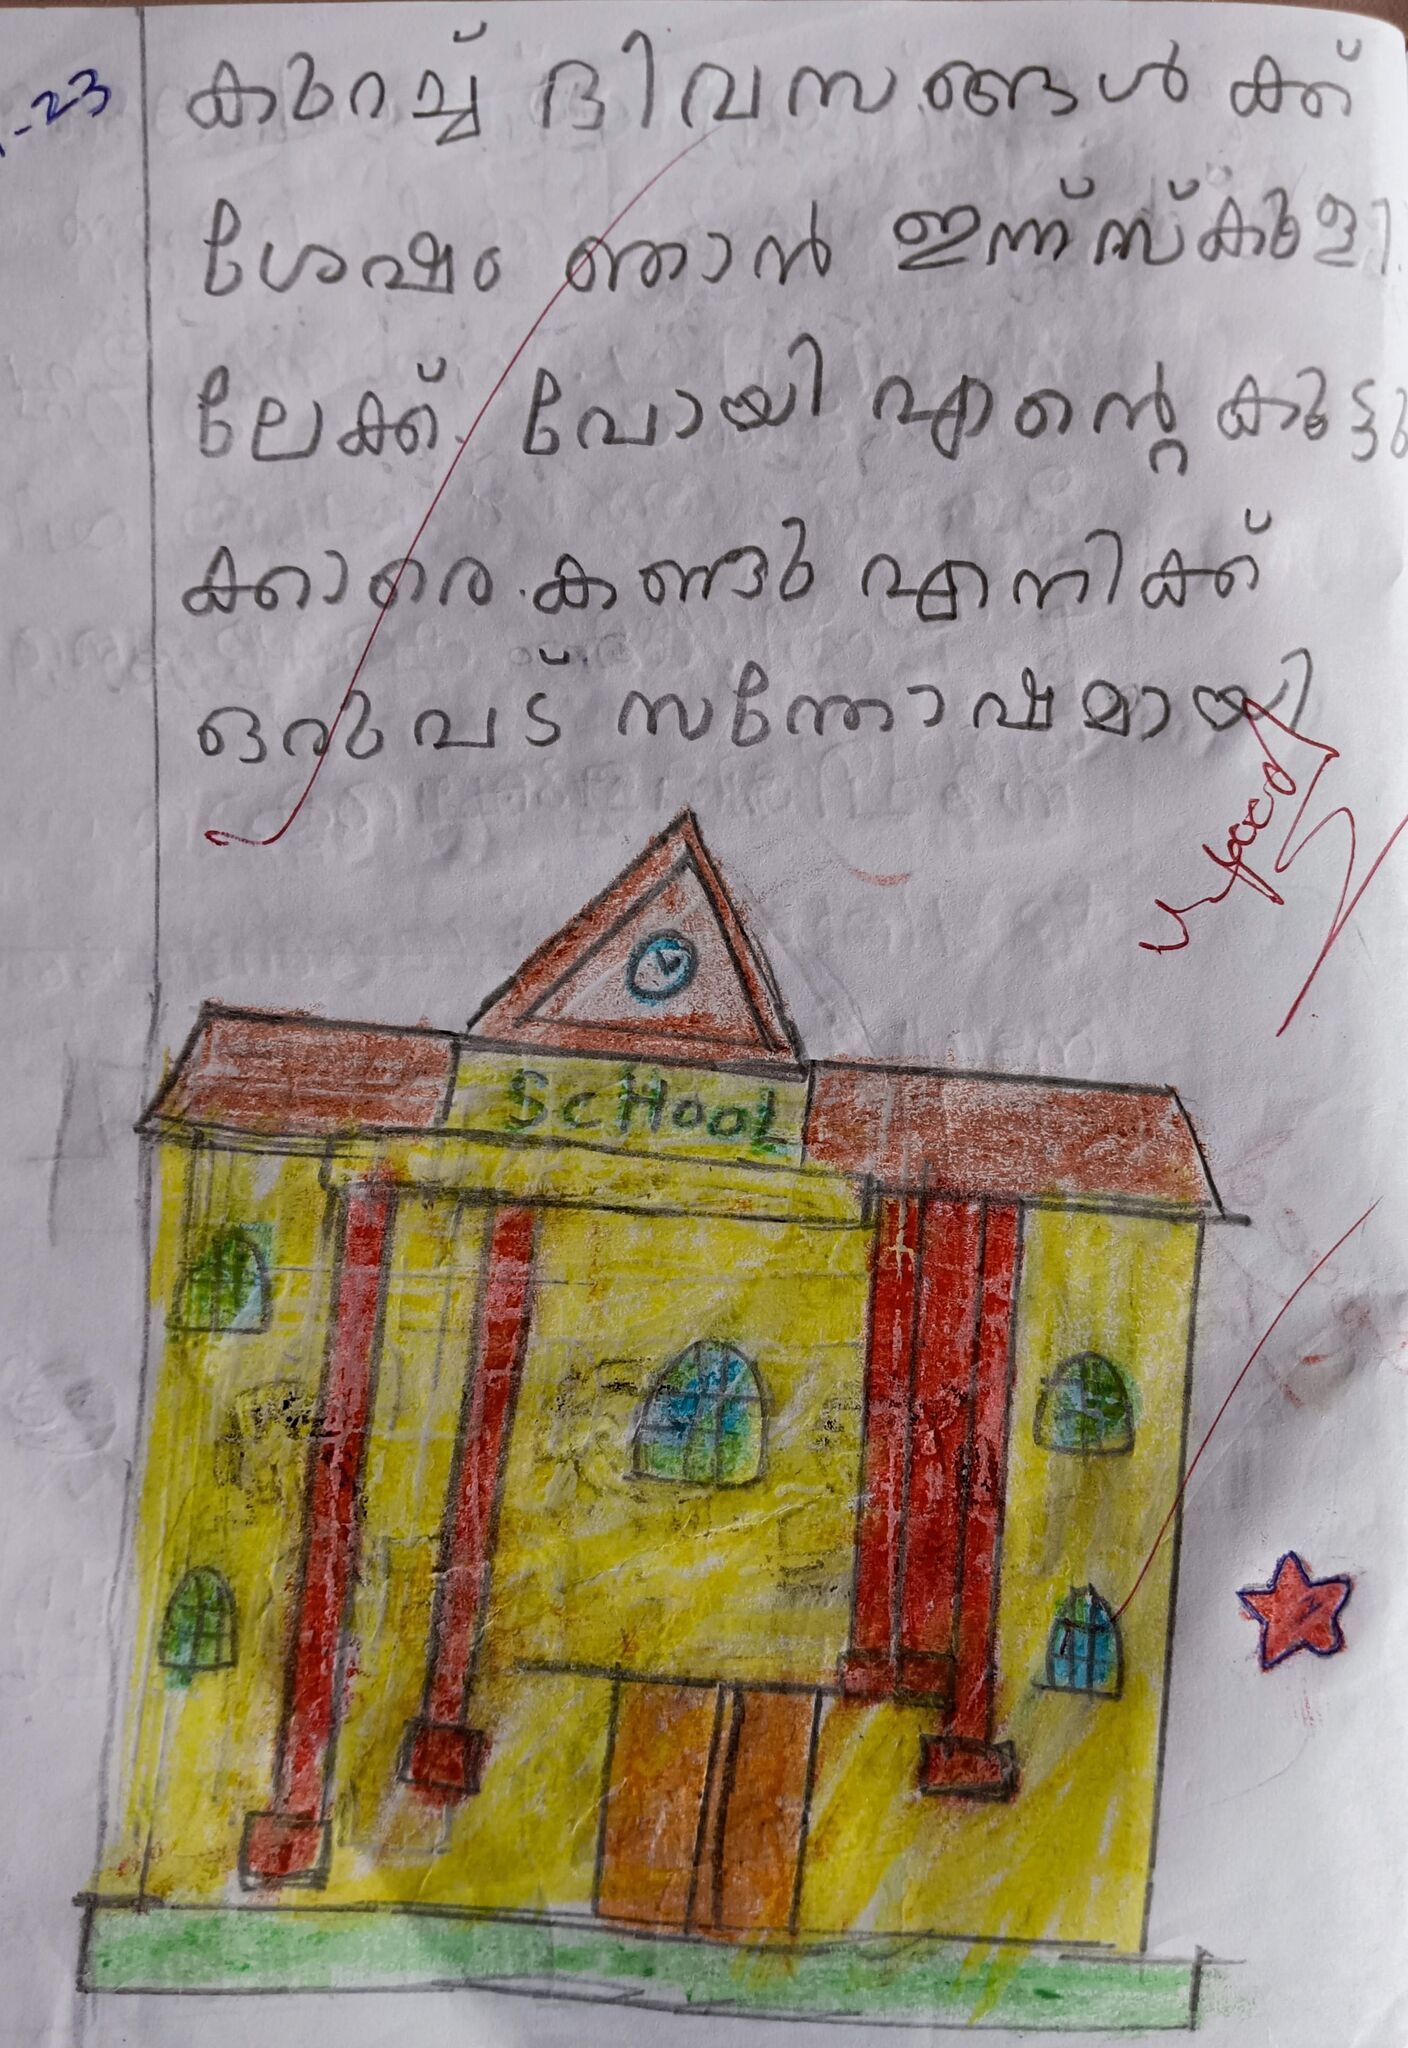 -23
കുറച്ച് ദിവസങ്ങൾ ക്ക്
ശേഷം ഞാൻ ഇന്ന് സ്കുളി
ലേക്ക്. പോയി എൻ്റെ കുട്ടു
ക്കാരെ. കണ്ടു എനിക്ക്
ഒരുപട് സന്തോഷമായി
SCHOOL